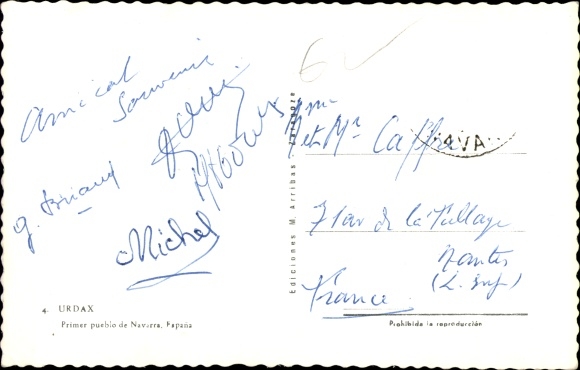 Amical
Souvenir
g. Briand
Michel
4. URDAX
Primer pueblo de Navarra. España
Ediciones M. Arribas Zaragoza
Mme
et Mr Caffre
AVA
7 de la
Nantes
(L. Inf)
France
Prohibida la reproducción